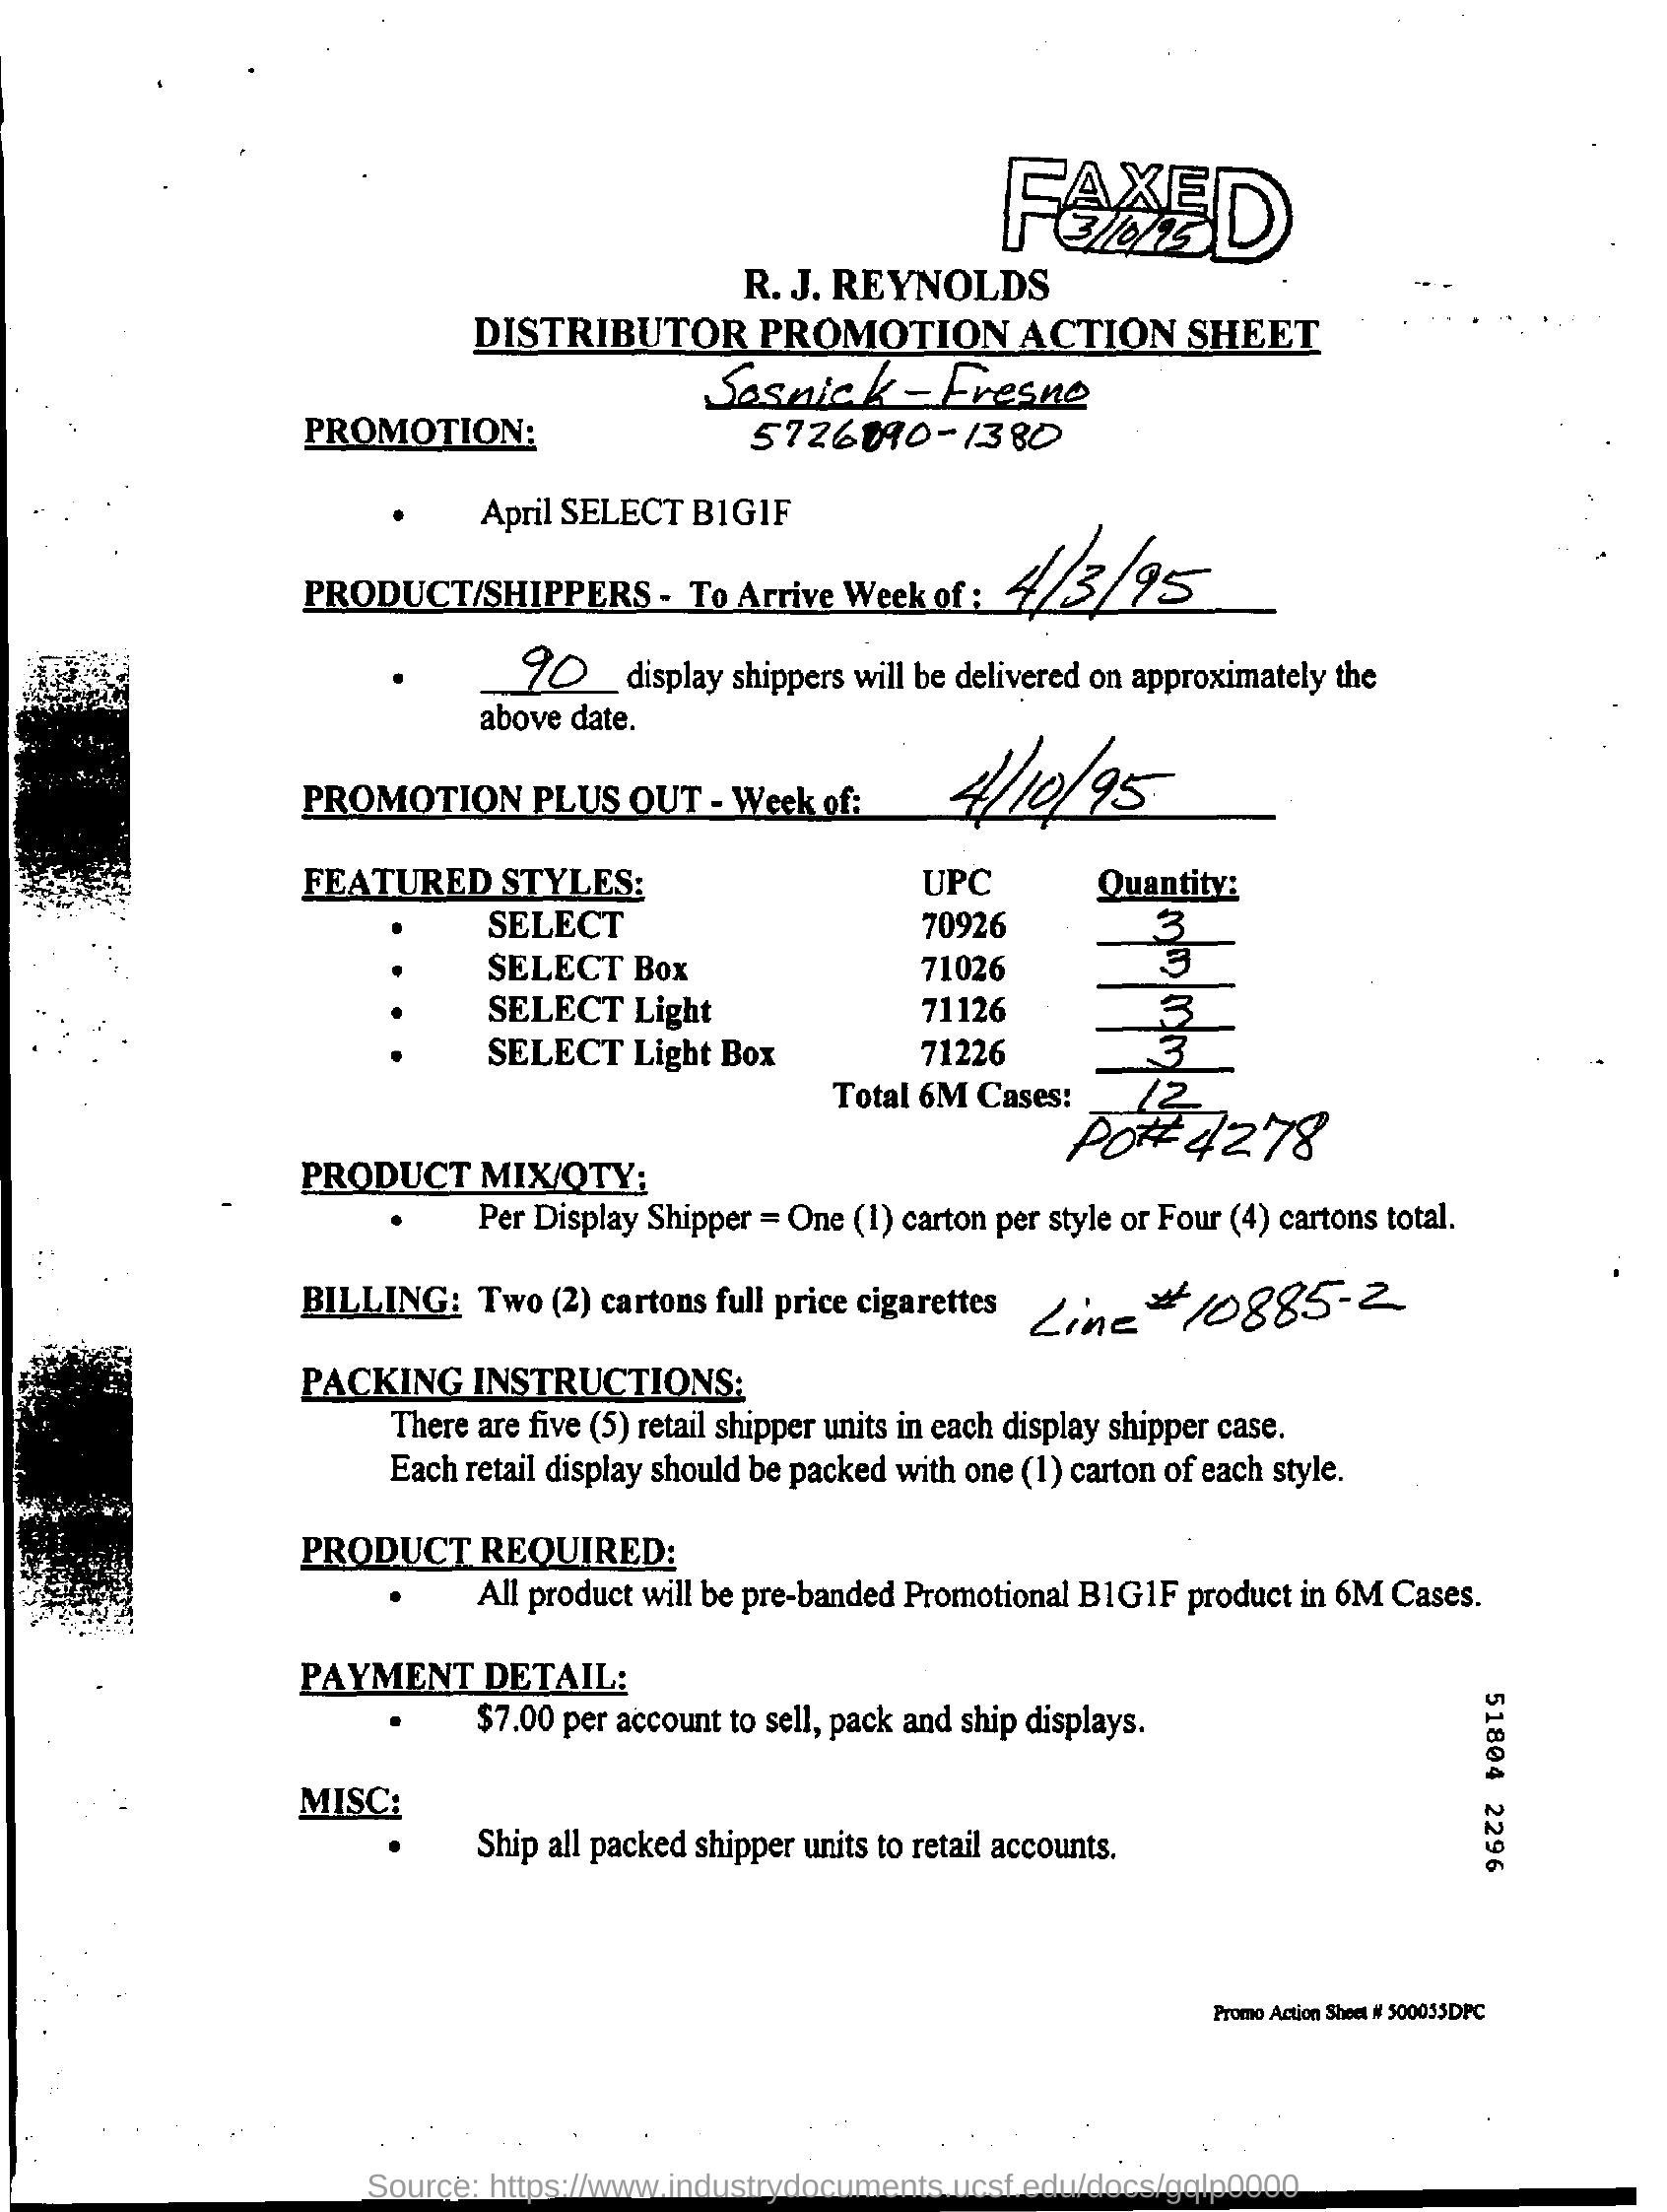 FAXED
3/10/95
R. J. REYNOLDS
DISTRIBUTOR PROMOTION ACTION SHEET
Sosnick - Fresno
PROMOTION: 5726090-1380
• April SELECT B1G1F
PRODUCT/SHIPPERS - To Arrive Week of : 4/3/95
• 90 display shippers will be delivered on approximately the
above date.
PROMOTION PLUS OUT - Week of: 4/10/95
FEATURED STYLES: UPC Quantity:
• SELECT 70926 3
• SELECT Box 71026 3
• SELECT Light 71126 3
• SELECT Light Box 71226 3
Total 6M Cases: 12
PO# 4278
PRODUCT MIX/QTY:
• Per Display Shipper = One (1) carton per style or Four (4) cartons total.
BILLING: Two (2) cartons full price cigarettes Line # 10885-2
PACKING INSTRUCTIONS:
There are five (5) retail shipper units in each display shipper case.
Each retail display should be packed with one (1) carton of each style.
PRODUCT REQUIRED:
• All product will be pre-banded Promotional B1G1F product in 6M Cases.
PAYMENT DETAIL:
• $7.00 per account to sell, pack and ship displays.
MISC:
• Ship all packed shipper units to retail accounts.
51804 2296
Promo Action Sheet # 500055DPC
Source: https://www.industrydocuments.ucsf.edu/docs/gqlp0000